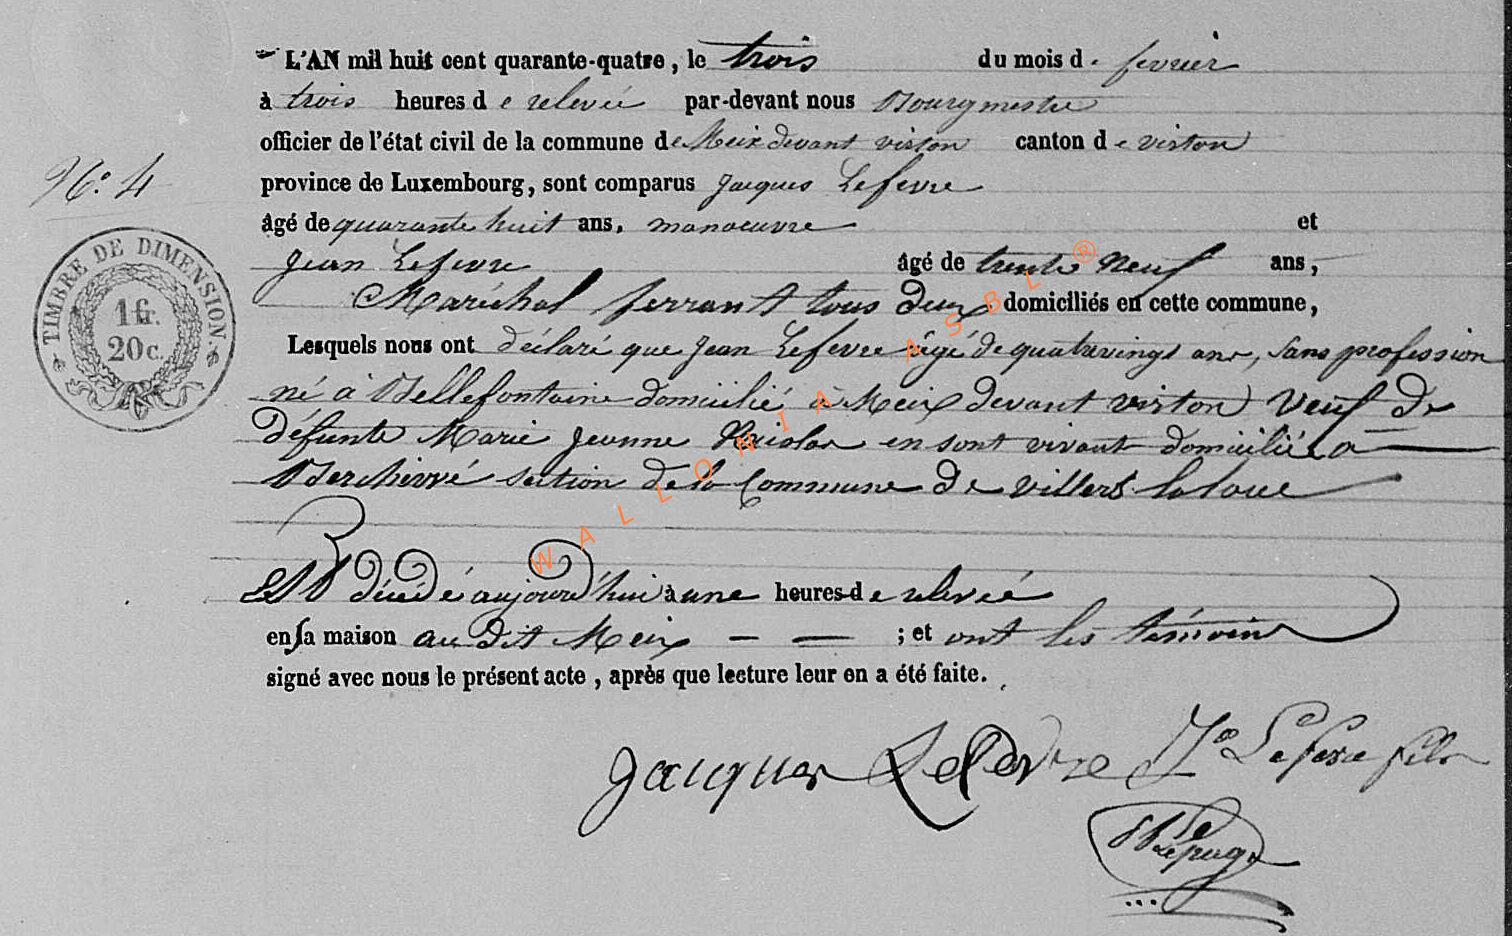 L'AN mil huit cent quarante-quatre, le trois du mois de fevrier
à trois heures de relevée par-devant nous Bourgmestre
officier de l'état civil de la commune de Meix devant virton canton de virton
N.° 4
province de Luxembourg, sont comparus Jacques Lefevre
âgé de quarante huit ans, manoeuvre et
Jean Lefevre âgé de trente neuf ans,
Maréchal ferrant tous deux domiciliés en cette commune,
TIMBRE DE DIMENSION.
1 fr.
20 c.
Lesquels nous ont déclaré que Jean Lefevre âgé de quatrevingt ans, sans profession
né à Bellefontaine domicilié à Meix devant virton veuf de
défunte Marie Jeanne en sont vivant domiciliée a
Berchivé section de la Commune de villers laloue
est décédé aujourd'hui à une heures de relevée
en sa maison au dit Meix ; et ont les témoins
signé avec nous le présent acte, après que lecture leur en a été faite.
Jacques Lefevre Jn Lefevre fils
WALLONIA ASBL ®